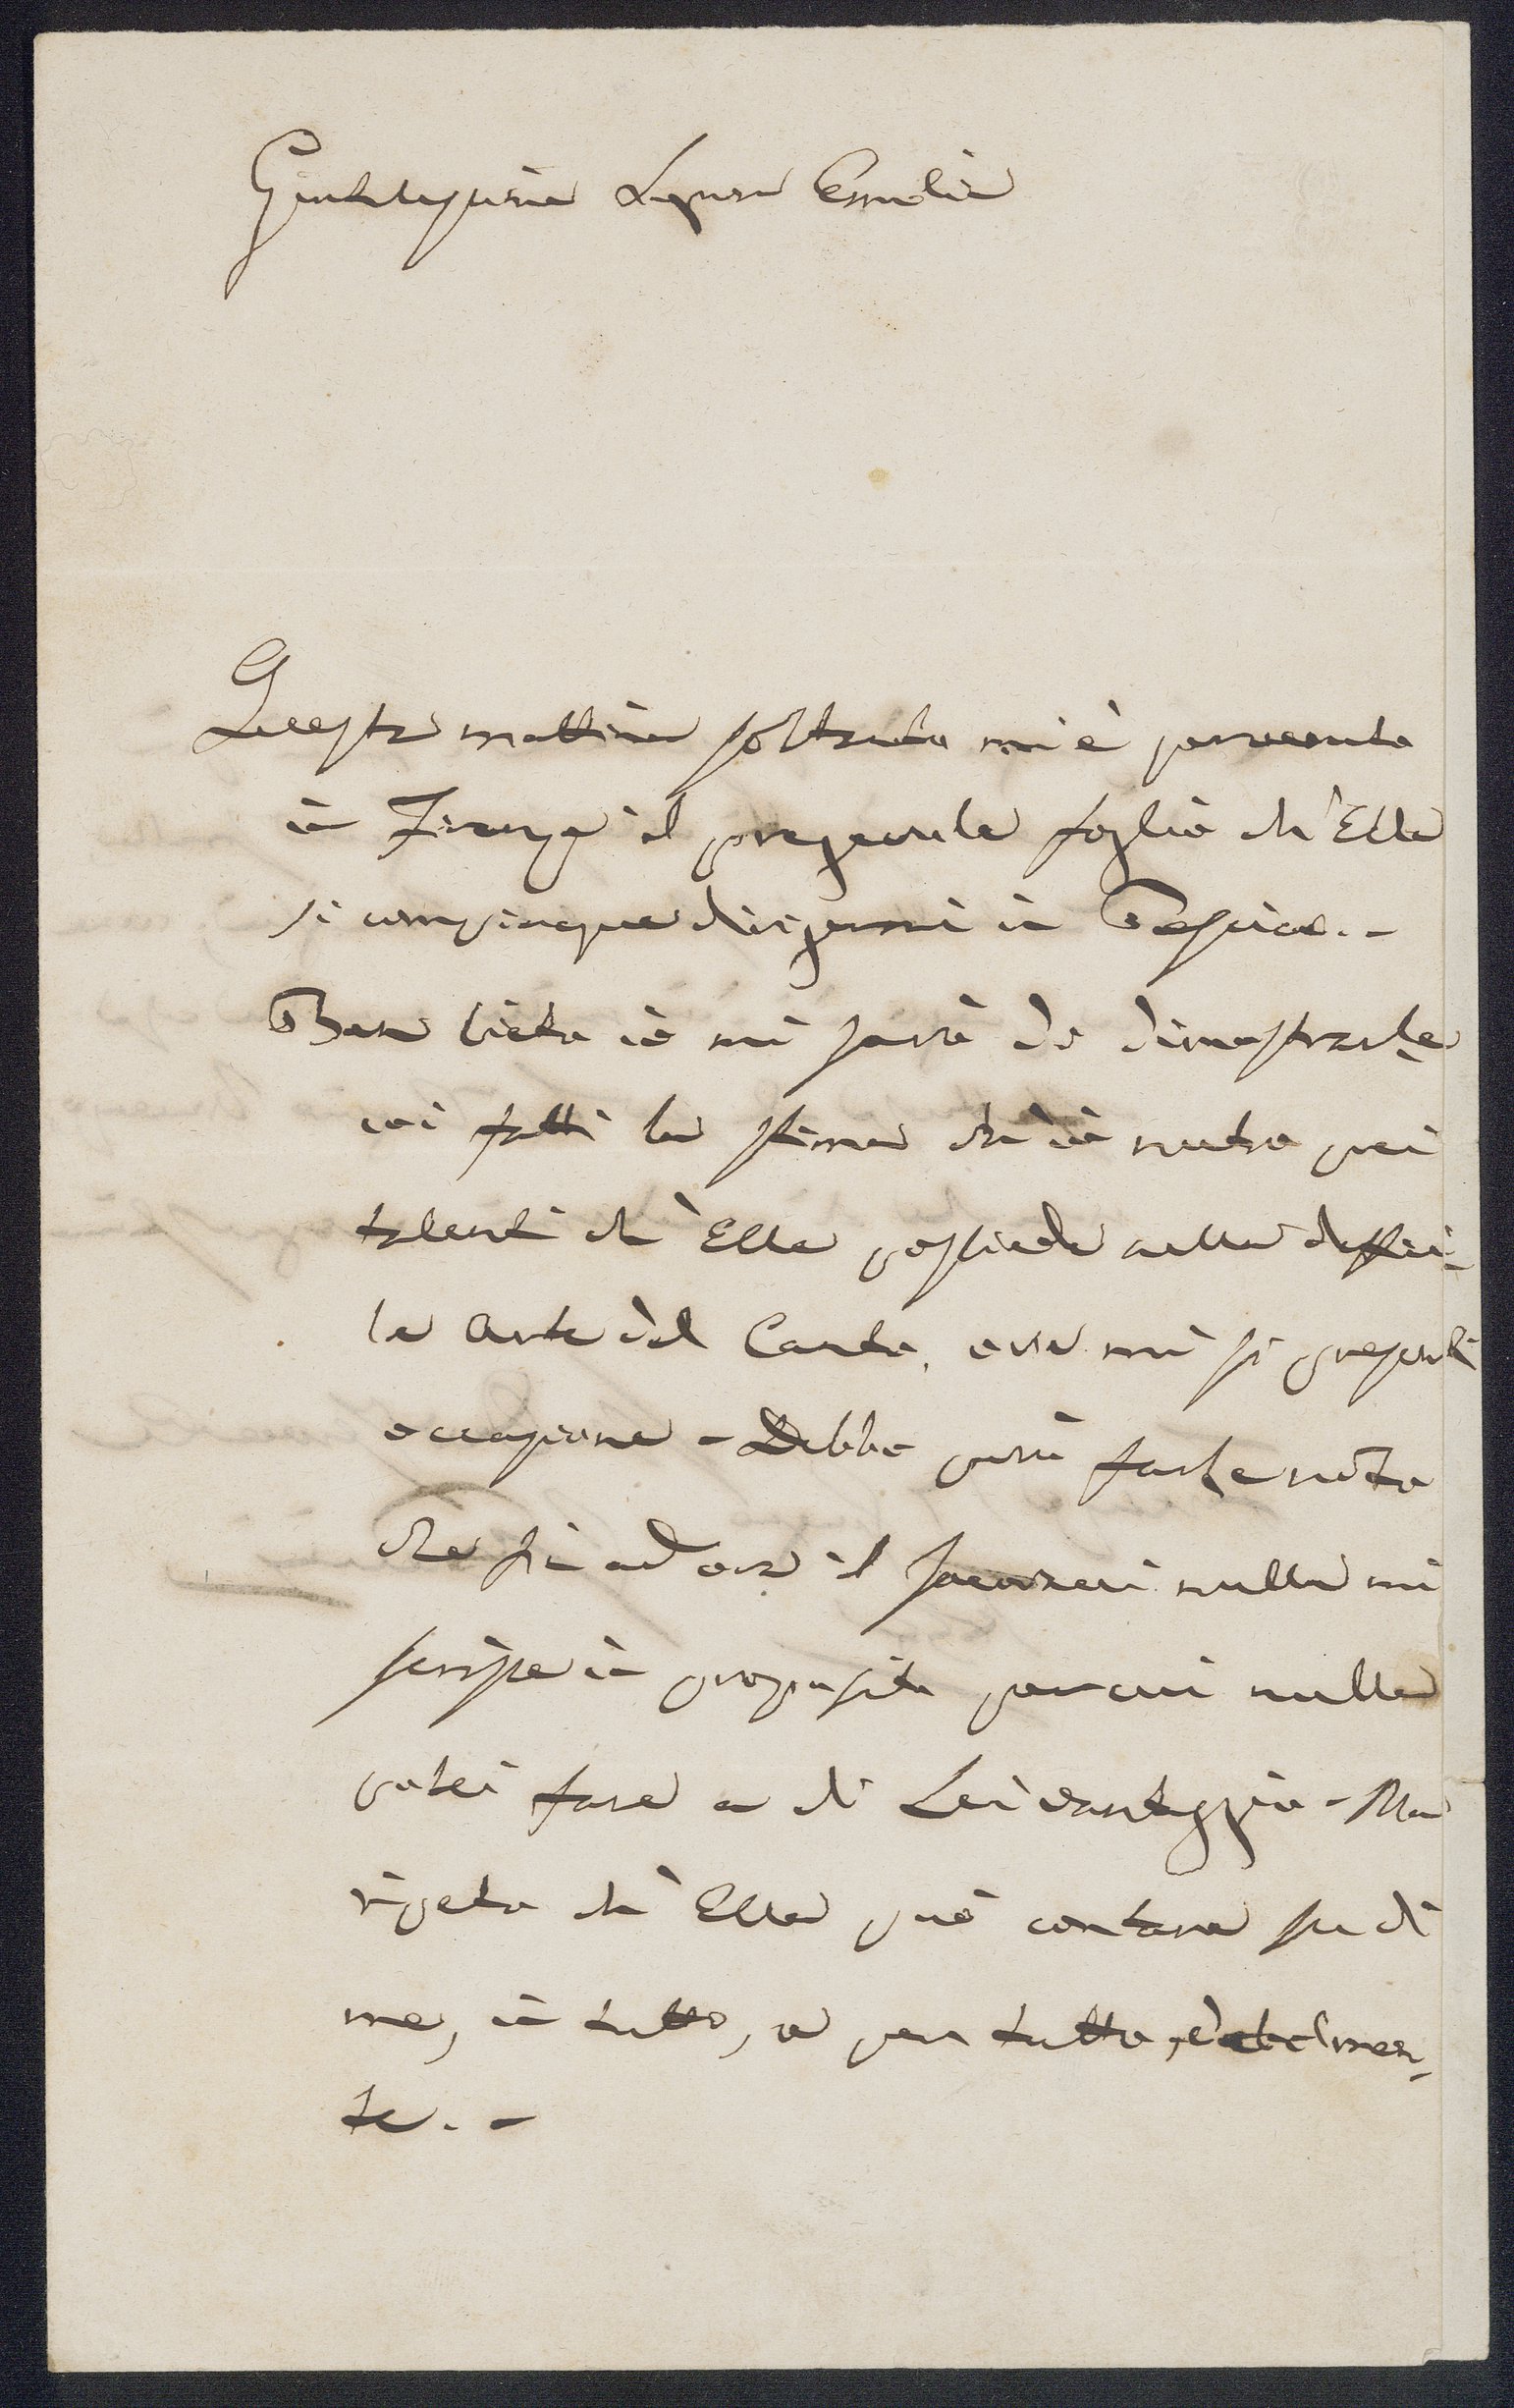 Gentilissima Signora Emelia
Questa mattina soltanto mi è pervenuto
in Firenze il pregevole foglio ch'Ella
si compiacque dirigermi in
Ben lieto io mi farò di dimostrarle
coi fatti la stima ch'io nutro pei
talenti ch'Ella possiede nella diffici-
le Arte del Canto, ove mi si presenti
occasione - Debbo però farle noto
che fin ad ora il nulla mi
scrisse in proposito per cui nulla
potei fare a di Lei vantaggio - Ma
ripeto ch'Ella può contare su di
me, in tutto, e per tutto,
te. -